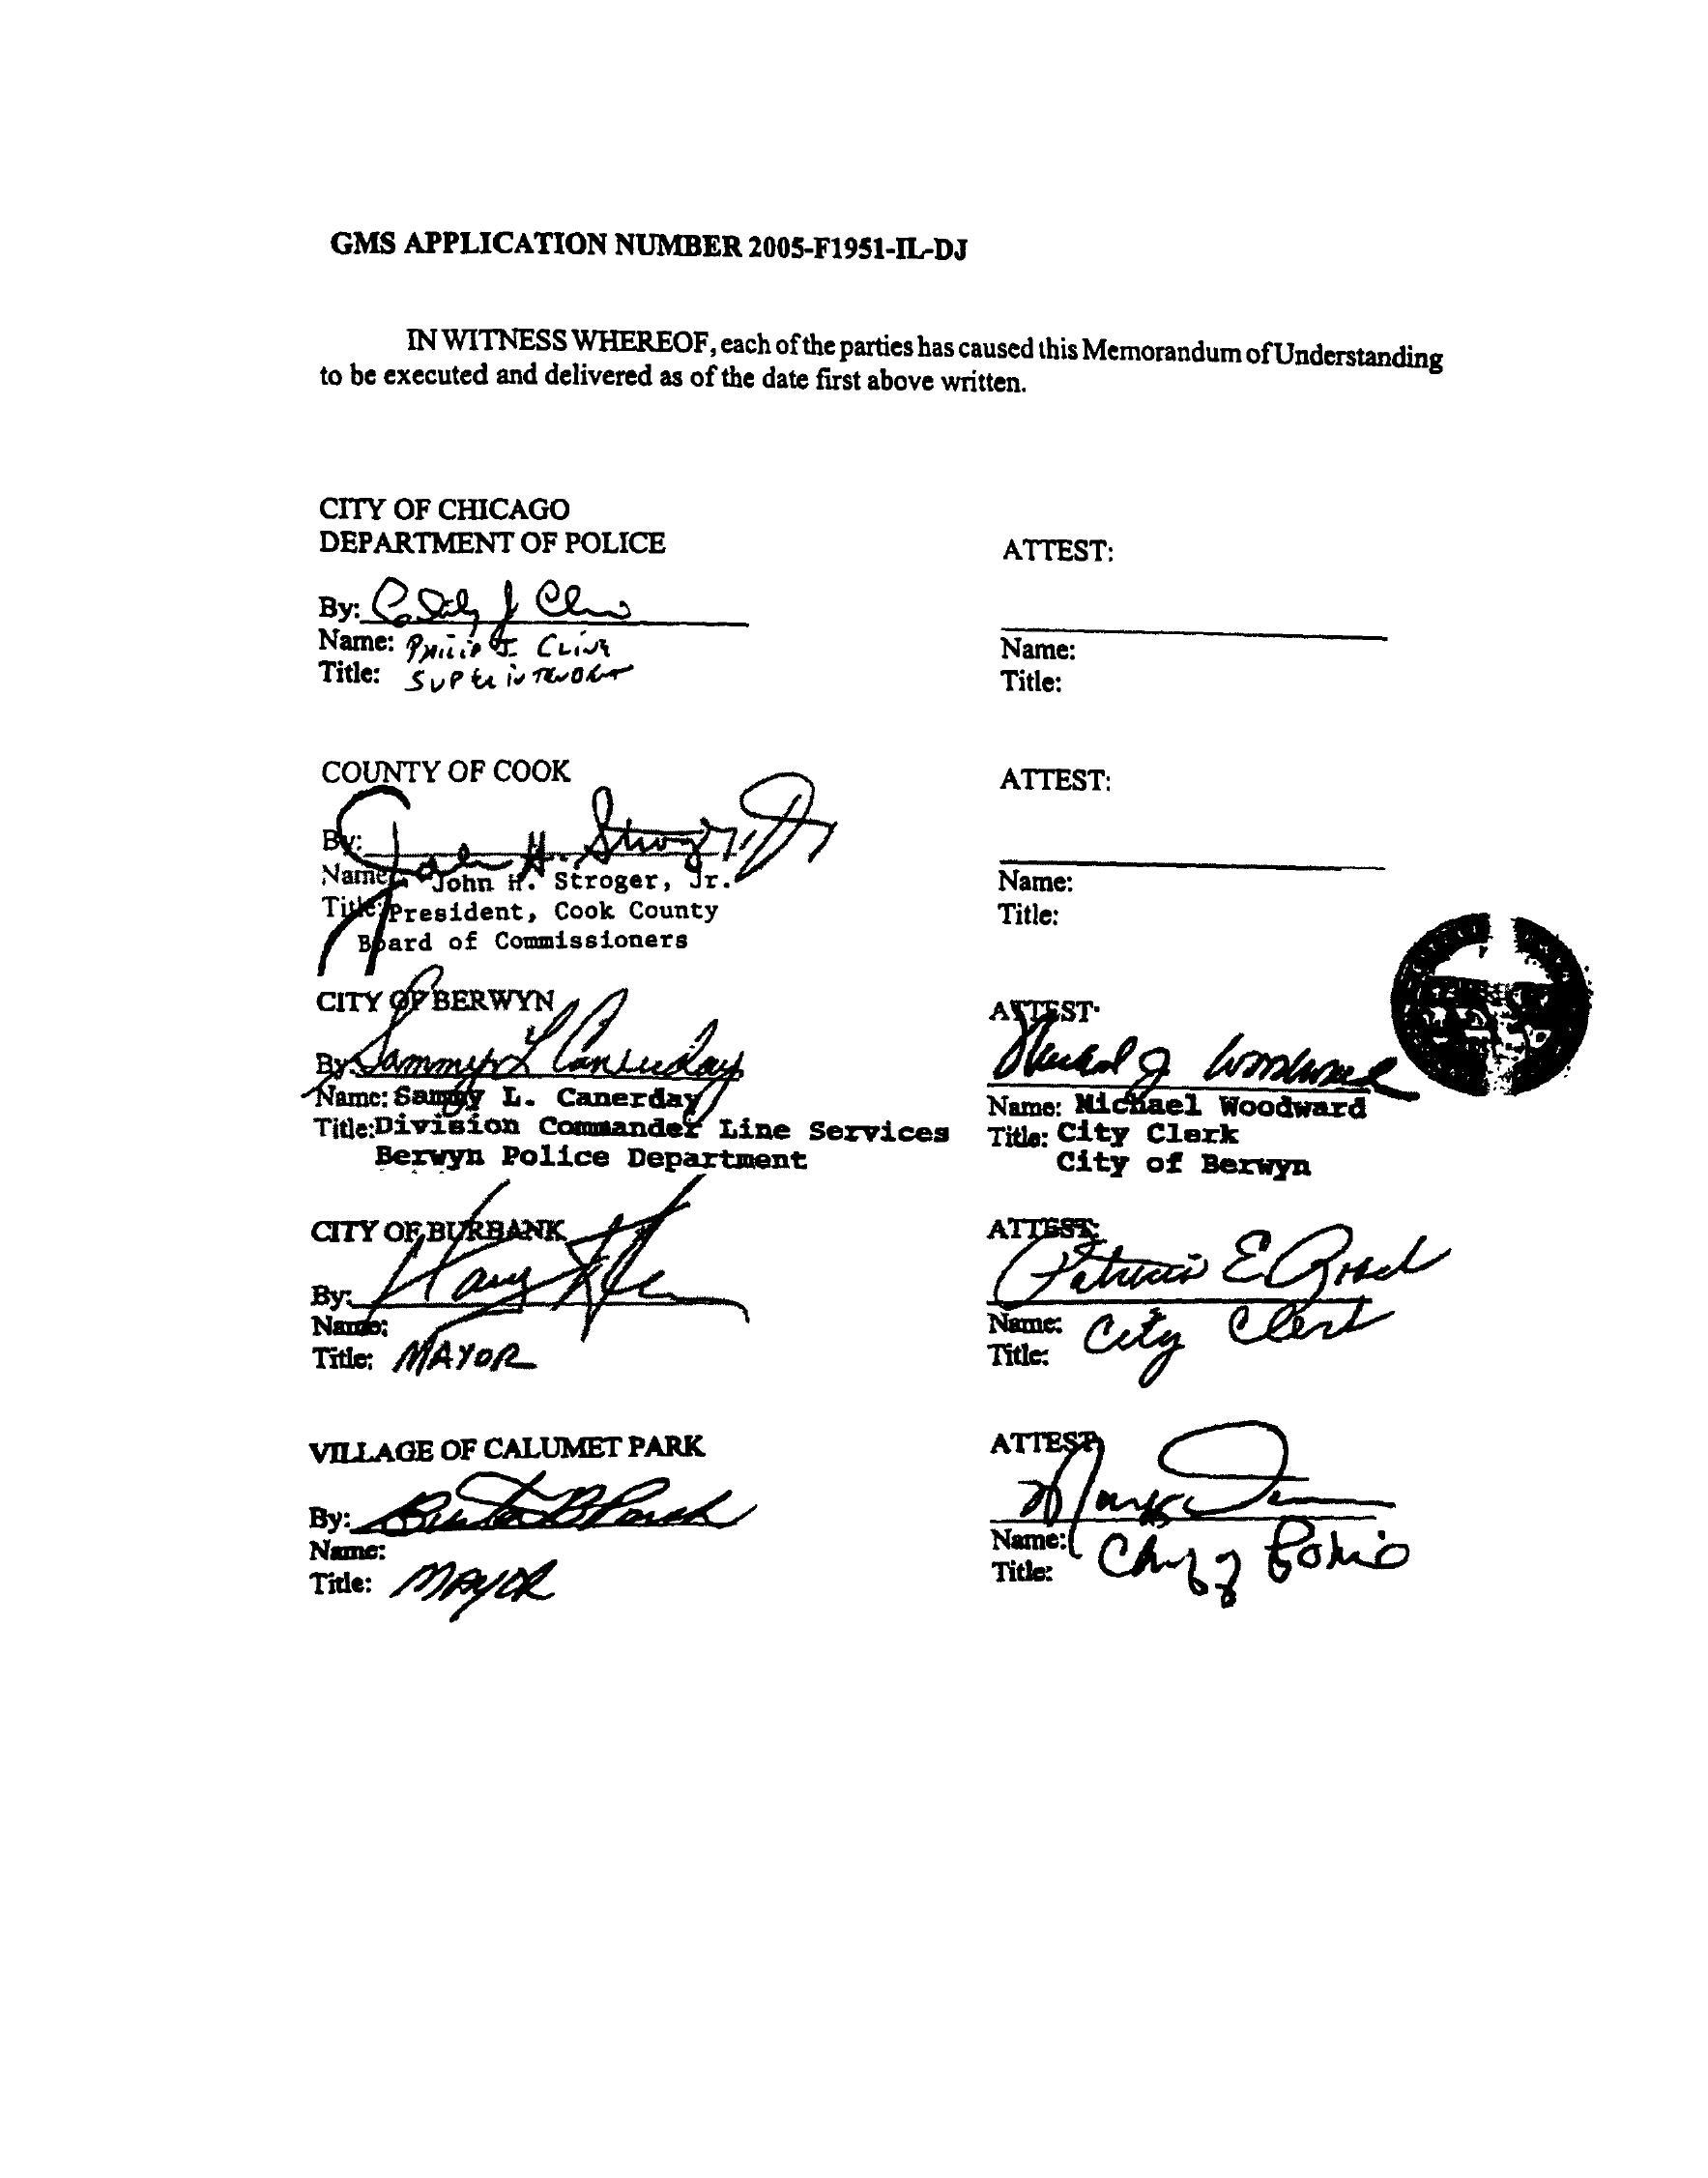 GMS APPLICATION NUMBER 2005-F1951-IL-DJ
IN WITNESS WHEREOF, each of the parties has caused this Memorandum of Understanding
to be executed and delivered as of the date first above written.
CITY OF CHICAGO
DEPARTMENT OF POLICE
By:
Name: Philip J. Cline
Title: SUPERINTENDENT
ATTEST:
Name:
Title:
COUNTY OF COOK
By: John H. Stroger, Jr.
Name: John H. Stroger, Jr.
Title: President, Cook County
Board of Commissioners
ATTEST:
Name:
Title:
CITY OF BERWYN
By: Sammy L Canerday
Name: Sammy L. Canerday
Title: Division Commander Line Services
Berwyn Police Department
ATTEST:
Michael J Woodward
Name: Michael Woodward
Title: City Clerk
City of Berwyn
CITY OF BURBANK
By: Harry
Name:
Title: MAYOR
ATTEST:
Patricia E
Name: City Clerk
Title:
VILLAGE OF CALUMET PARK
By:
Name:
Title: MAYOR
ATTEST:
Mark
Name: Chief of Police
Title: